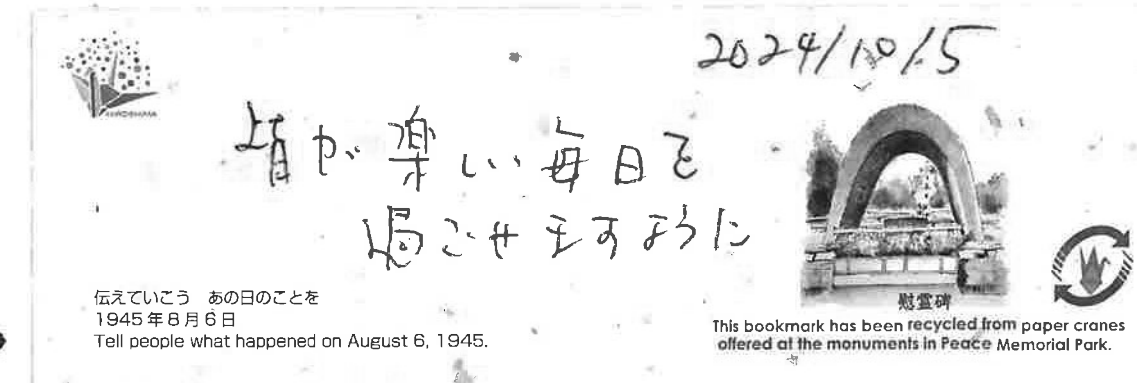 HIROSHIMA
2024/10/5
皆が楽しい毎日を
過ごせますように
慰霊碑
伝えていこう　あの日のことを
1945年8月6日
Tell people what happened on August 6, 1945.
This bookmark has been recycled from paper cranes
offered at the monuments in Peace Memorial Park.